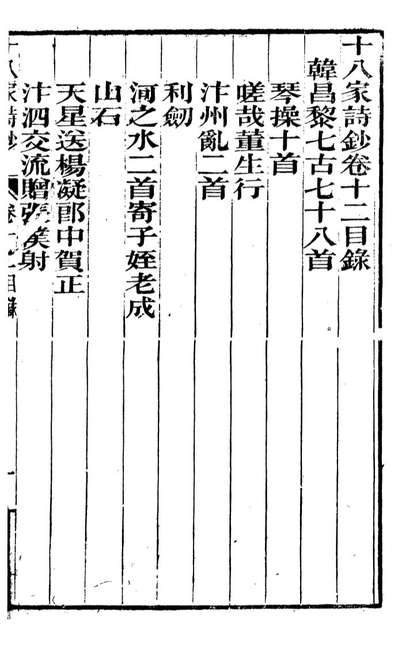 十八家詩鈔卷十二目錄
韓昌黎七古七十八首
琴操十首
嗟哉董生行
汴州亂二首
利劒
河之水二首寄子姪老成
山石
天星送楊凝郎中賀正
汴泗交流贈張僕射